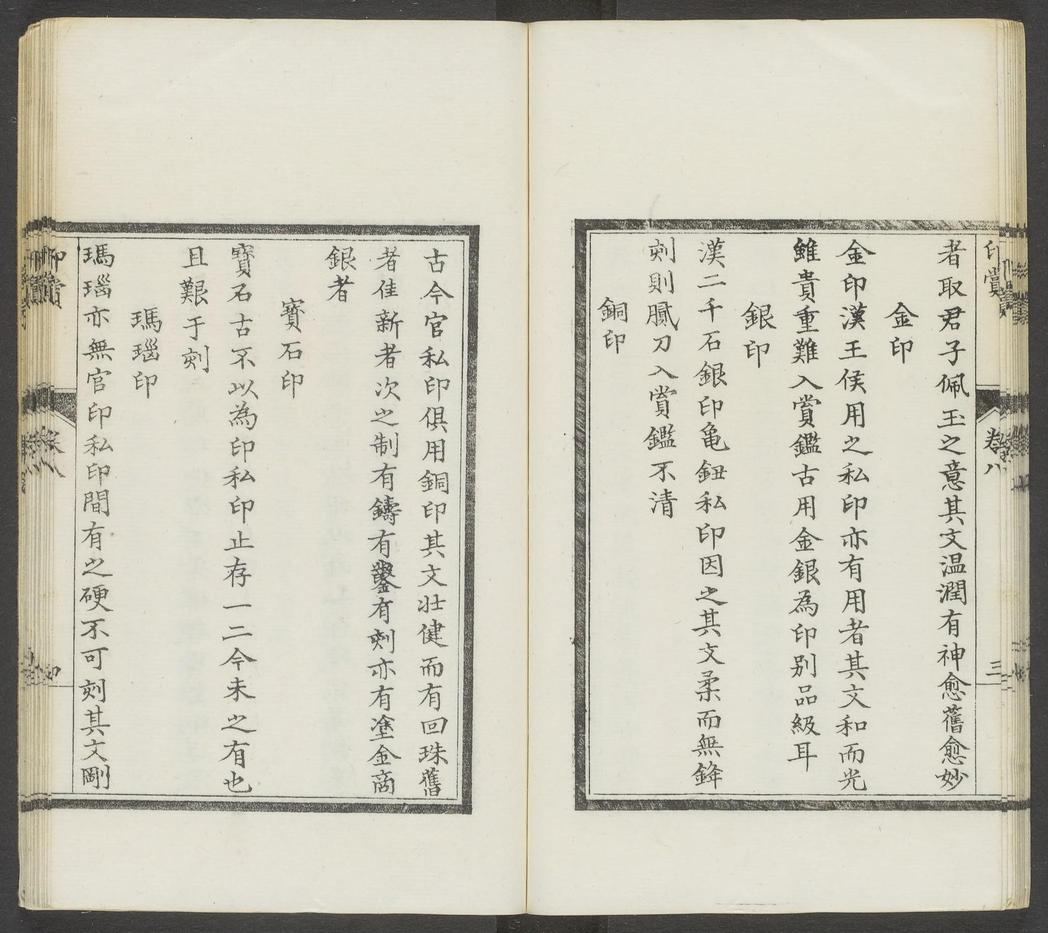 印賞
卷八
三
者取君子佩玉之意其文温潤有神愈舊愈妙
金印
金印漢王侯用之私印亦有用者其文和而光
雖貴重難入賞鑑古用金銀為印别品級耳
銀印
漢二千石銀印龜鈕私印因之其文柔而無鋒
刻則膩刀入賞鑑不清
銅印
古今官私印俱用銅印其文壯健而有回珠舊
者佳新者次之制有鑄有鑿有刻亦有塗金商
銀者
寶石印
寶石古不以為印私印止存一二今未之有也
且艱于刻
瑪瑙印
瑪瑙亦無官印私印間有之硬不可刻其文剛